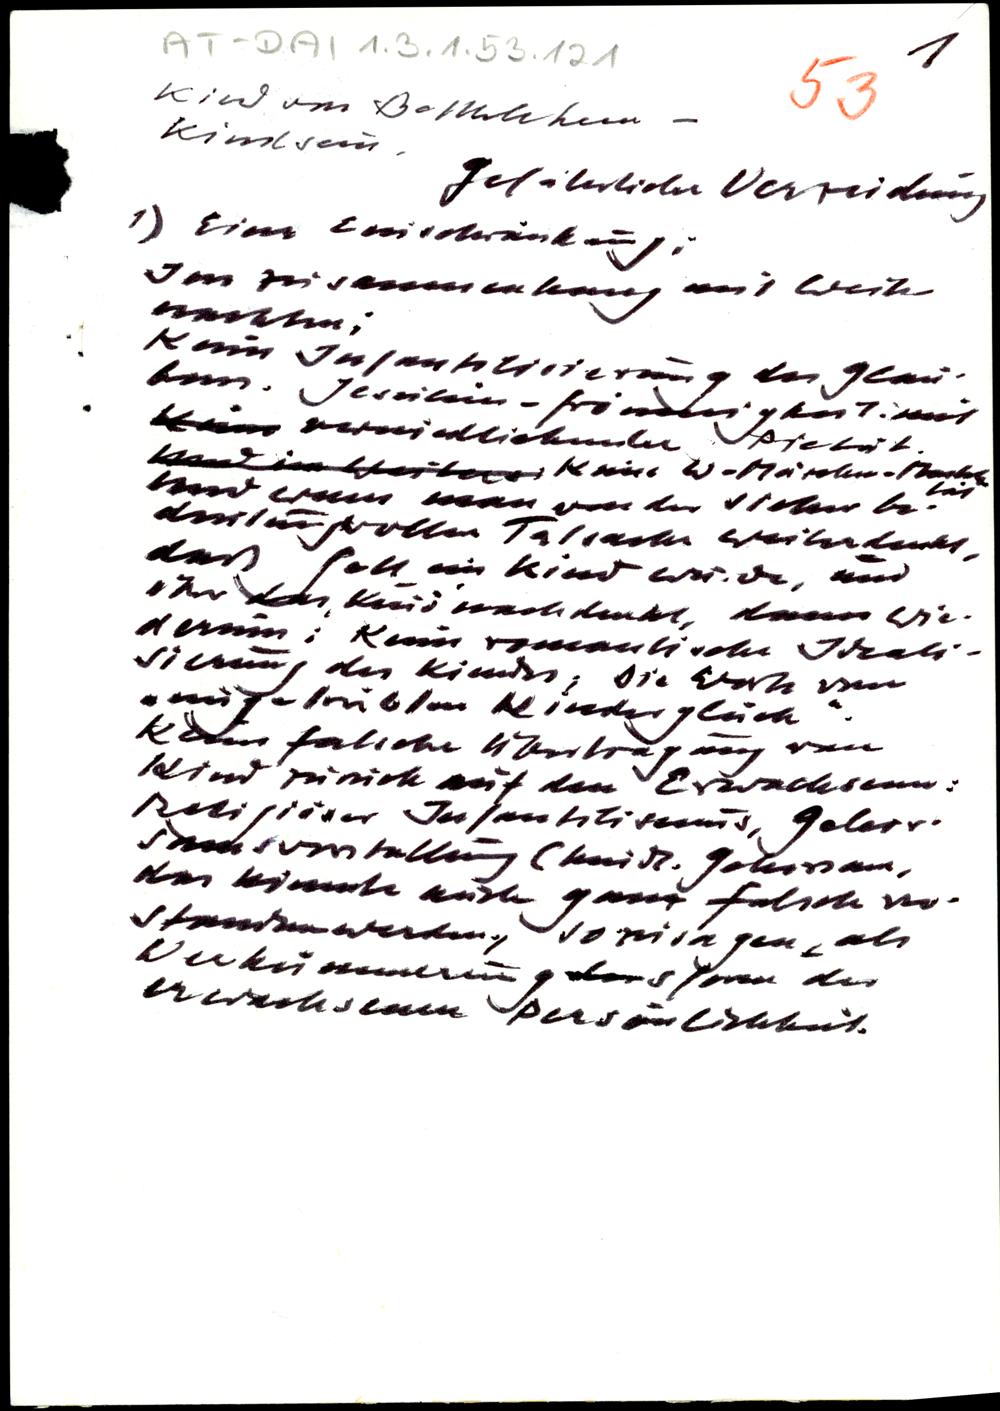 AT-DAI 1.3.1.53.121
53
1
Kind von Bethlehem –
Kindsein.
Gefährliche Verneidung
1) Eine Einschränkung:
Im Zusammenhang mit Weih
nachten:
Keine Infantilisierung des Glau-
bens. Jesulein-frömmigkeit: mit
Keine verniedlichender Pietät.
Keine W-Märchen-
Und wenn man von der sicher be-
deutungsvollen Tatsache weiterdenkt,
daß Gott ein Kind wurde, und
über das Kind nachdenkt, dann wie-
derum: Keine romantische Ideali-
sierung des Kindes; Die Worte vom
"ungetrübten Kinderglück".
Keine falsche Übertragung vom
Kind zurück auf den Erwachsenen:
Religiöser Infantilismus, Gehor-
samsvorstellung (kindl. Gehorsam,
das könnte auch ganz falsch ver-
standen werden, sozusagen als
Verkümmerungsform der
erwachsenen Persönlichkeit.